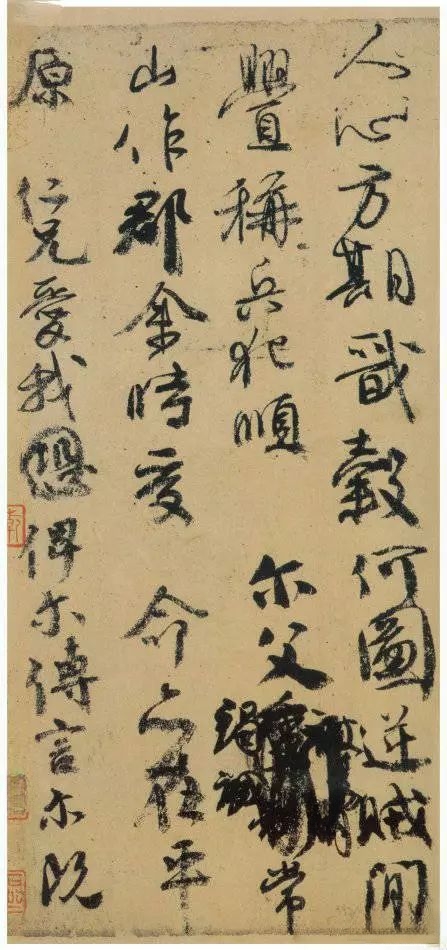 人心方期戩穀何圖逆賊閒
舋稱兵犯順 尓父竭誠常
山作郡余時受 命亦在平
原 仁兄愛我恐俾尓傳言尓既